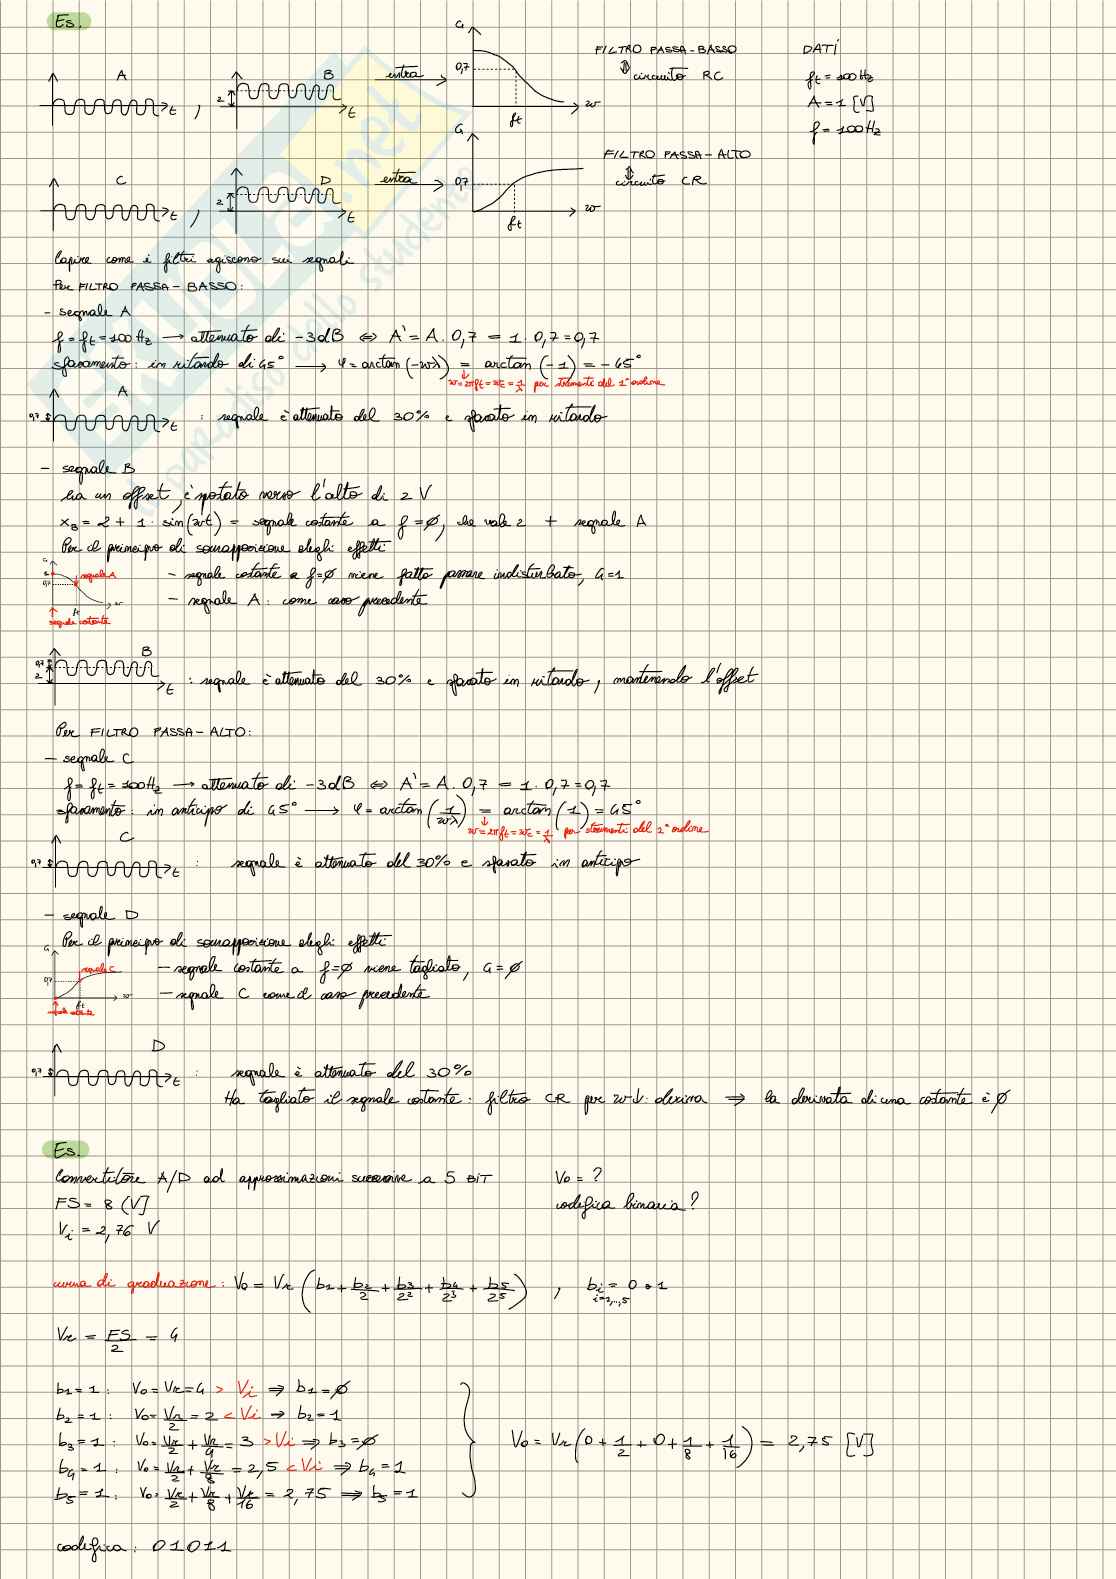 Es.
A , B entra G 0,7 ft w FILTRO PASSA-BASSO DATI
circuito RC ft = 100 Hz
A = 1 [V]
f = 100 Hz
C , D entra G 0,7 ft w FILTRO PASSA-ALTO
circuito CR
Capire come i filtri agiscono sui segnali
Per FILTRO PASSA-BASSO:
- segnale A
f = ft = 100 Hz → attenuato di -3dB ⇔ A' = A · 0,7 = 1 · 0,7 = 0,7
sfasamento: in ritardo di 45° → φ = arctan(-wλ) = arctan(-1) = -45°
w = 2πft = wt = 1/λ per strumenti del 1° ordine
0,7 A t : segnale è attenuato del 30% e sfasato in ritardo
- segnale B
ha un offset, è spostato verso l'alto di 2 V
xB = 2 + 1 · sin(wt) = segnale costante a f=∅, che vale 2 + segnale A
Per il principio di sovrapposizione degli effetti
segnale A - segnale costante a f=∅ viene fatto passare indisturbato, G=1
- segnale A: come caso precedente
segnale costante
0,7 2 B t : segnale è attenuato del 30% e sfasato in ritardo, mantenendo l'offset
Per FILTRO PASSA-ALTO:
- segnale C
f = ft = 100Hz → attenuato di -3dB ⇔ A' = A · 0,7 = 1 · 0,7 = 0,7
sfasamento: in anticipo di 45° → φ = arctan(1/wλ) = arctan(1) = 45°
w = 2πft = wt = 1/λ per strumenti del 1° ordine
0,7 C t : segnale è attenuato del 30% e sfasato in anticipo
- segnale D
Per il principio di sovrapposizione degli effetti
segnale C - segnale costante a f=∅ viene tagliato, G=∅
0,7 ft w - segnale C come il caso precedente
0,7 D t : segnale è attenuato del 30%
Ha tagliato il segnale costante: filtro CR per w↓: deriva ⇒ la derivata di una costante è ∅
Es.
Convertitore A/D ad approssimazioni successive a 5 BIT Vo = ?
FS = 8 [V] codifica binaria?
Vi = 2,76 V
curva di graduazione: Vo = Vr (b1 + b2/2 + b3/2² + b4/2³ + b5/2⁵) , bi = 0 o 1
i=1,..,5
Vr = FS/2 = 4
b1 = 1: Vo = Vr = 4 > Vi ⇒ b1 = ∅
b2 = 1: Vo = Vr/2 = 2 < Vi → b2 = 1
b3 = 1: Vo = Vr/2 + Vr/4 = 3 > Vi ⇒ b3 = ∅ Vo = Vr (0 + 1/2 + 0 + 1/8 + 1/16) = 2,75 [V]
b4 = 1: Vo = Vr/2 + Vr/8 = 2,5 < Vi ⇒ b4 = 1
b5 = 1: Vo = Vr/2 + Vr/8 + Vr/16 = 2,75 ⇒ b5 = 1
codifica: 01011